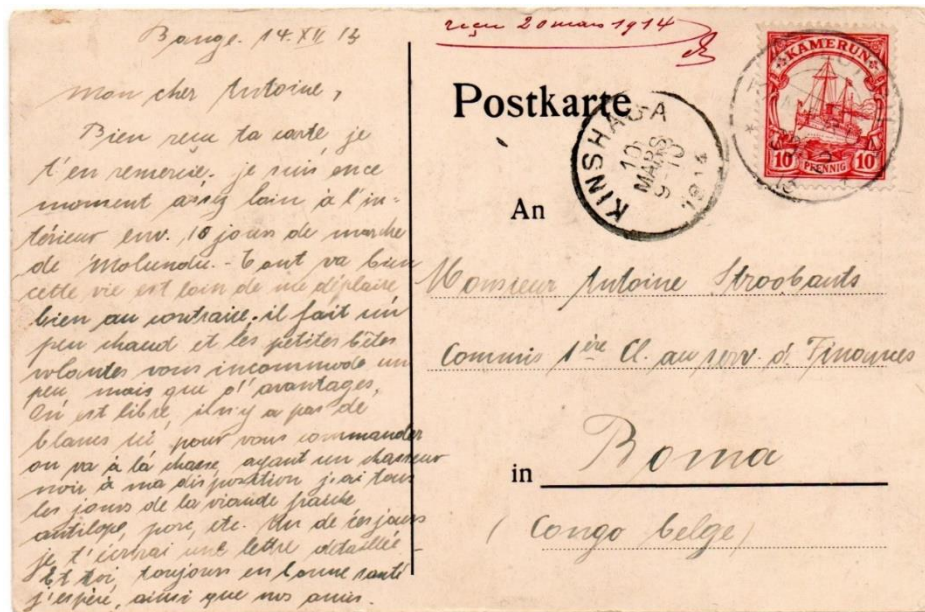 Bange. 14.XII 13
mon cher Antoine,
Bien reçu ta carte je
t'en remercie. je suis ence
moment assez loin à l'in-
térieur env. 18 jours de marche
de Molundu. - tout va bien
cette vie est loin de me déplaire
bien au contraire. il fait un
peu chaud et les petites bêtes
volantes vous incommode un
peu, mais que d'avantages,
On est libre, il n'y a pas de
blancs ici pour vous commander
on va à la chasse, ayant un chasseur
noir à ma disposition j'ai tous
les jours de la viande fraiche
antilope, porc, etc. Un de ces jours
je t'écrirai une lettre détaillée -
Et toi, toujours en bonne santé
j'espère, ainsi que nos amis.
reçu 20 mars 1914
Postkarte
KAMERUN
10 PFENNIG 10
KINSHASA
10
MARS
9-10
1914
An
Monsieur Antoine Stroobants
Commis 1ère Cl. au serv. d. Finances
in Boma
(Congo belge)